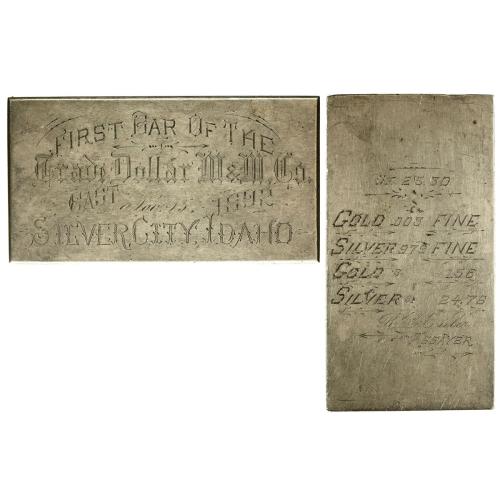 FIRST BAR OF THE
IN
Trade Dollar M & M Co.
CAST Nov. 15. 1892
SILVER CITY, IDAHO
OZ. 25.30
GOLD .003 FINE
SILVER 978 FINE
GOLD $ 1.56
SILVER $ 24.76
ASSAYER